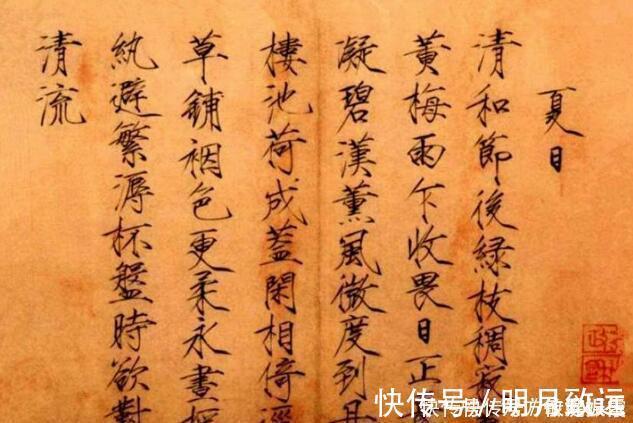 夏日
清和節後綠枝稠寂
黃梅雨乍收畏日正
凝碧漢薰風微度到丹
樓池荷成蓋閑相倚徑
草鋪裀色更柔永晝
紈避繁溽杯盤時欲對
清流
快传号/明月致远